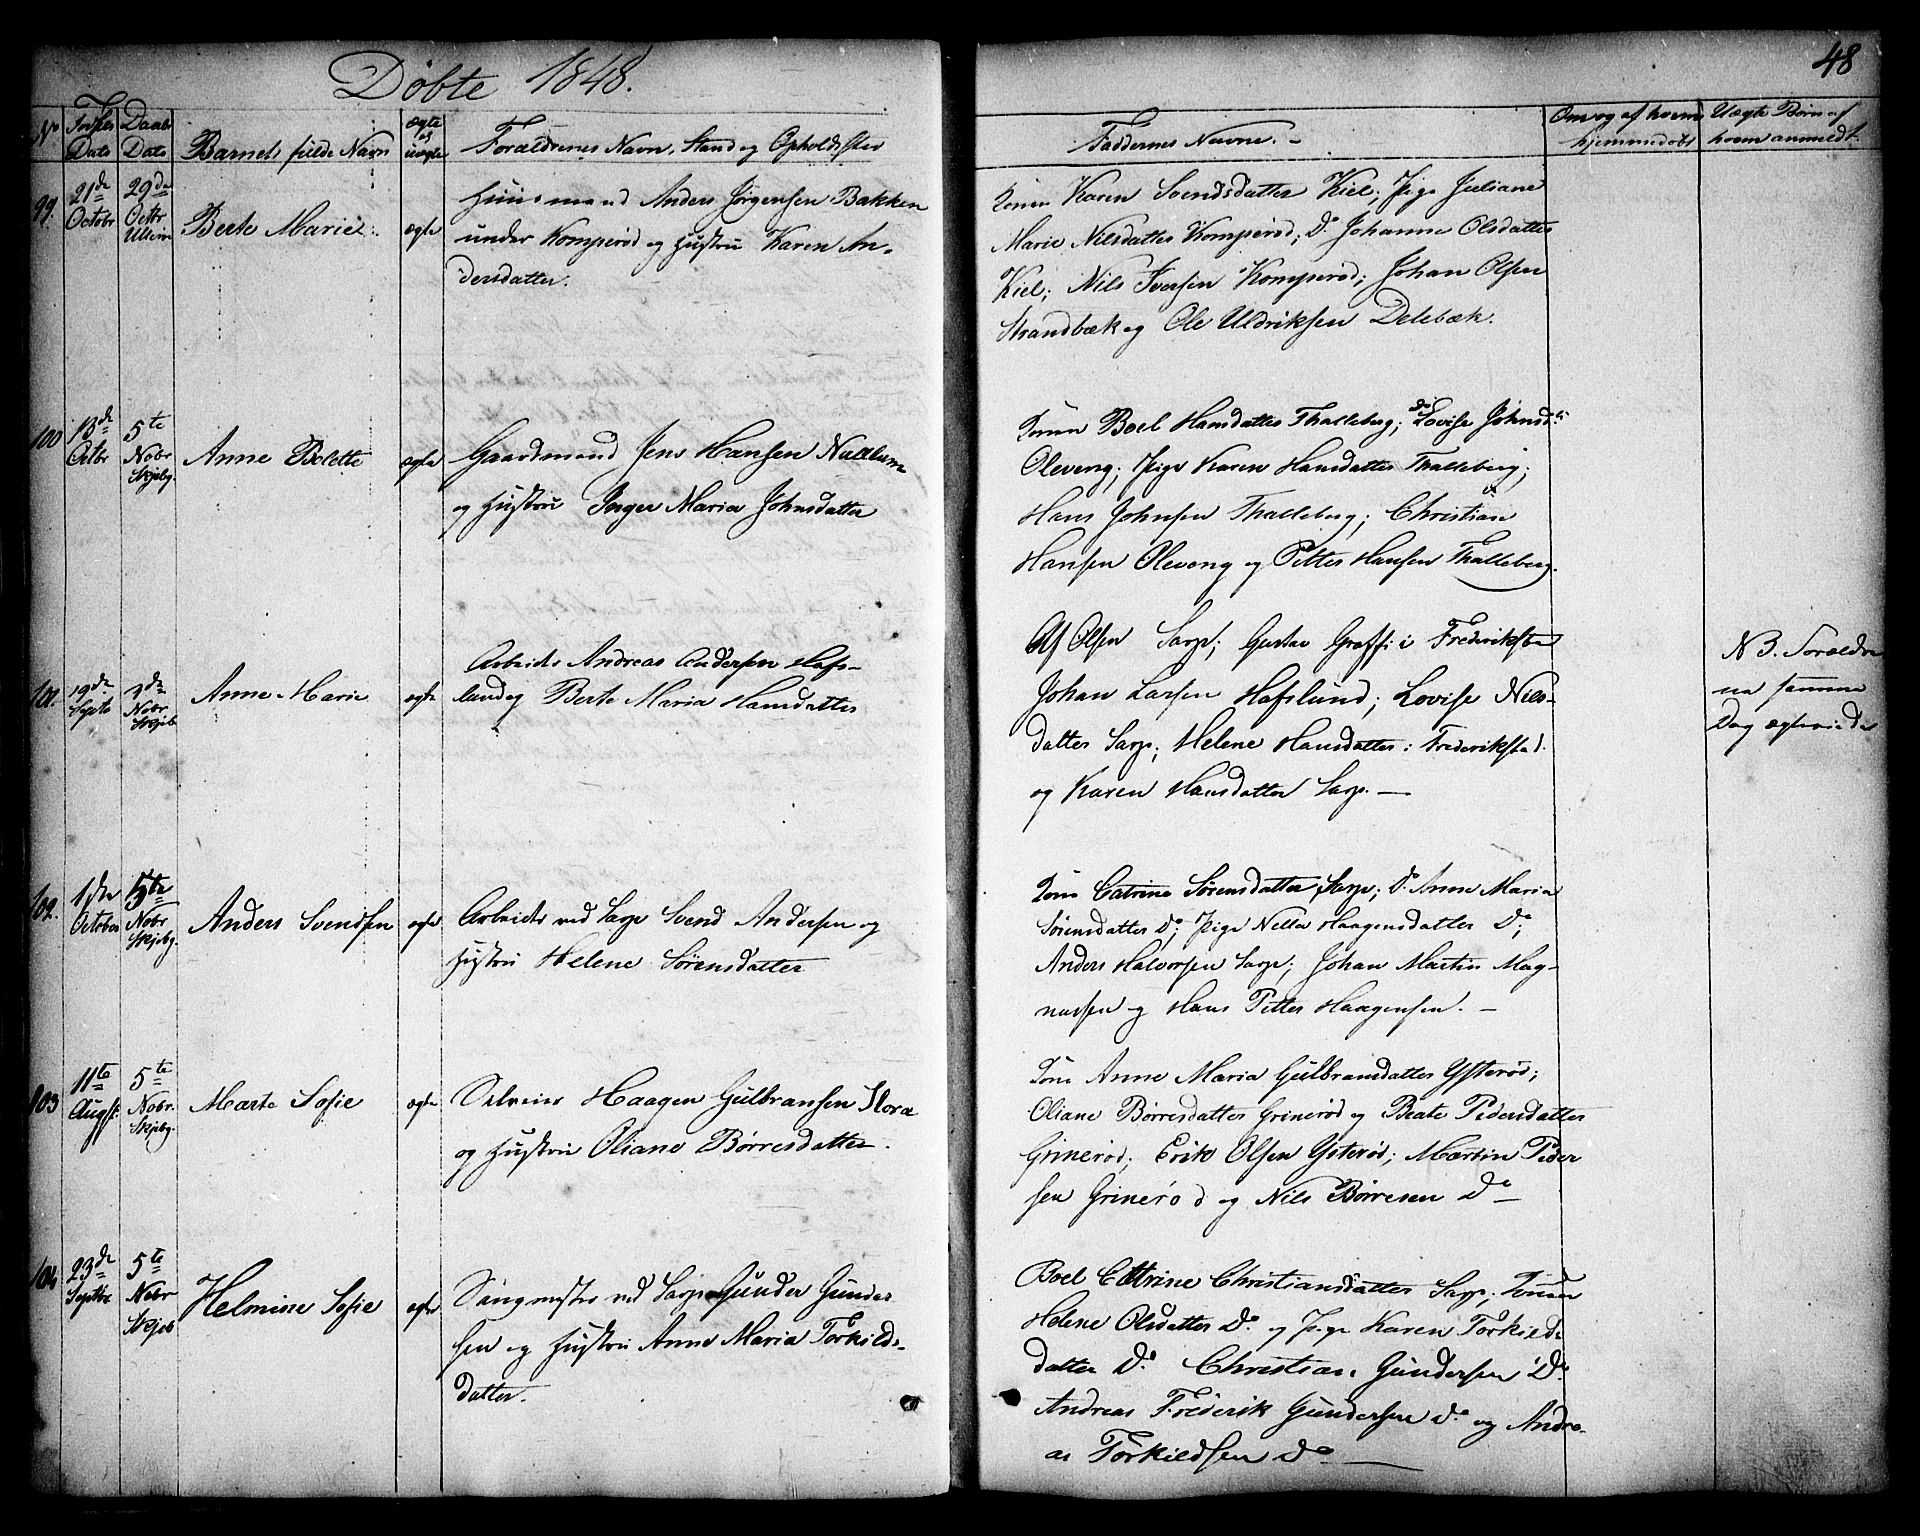 Døbte 1848.
48
No
Fødsels Dato
Daabs Dato
Barnets fulde Navn
ægte og uægte
Forældrenes Navn, Stand og Opholdssted
Faddernes Navne. -
Om og af hvem hjemmedøbt
Uægte Børn af hvem anmeldt
99.
21de Octobr
29de Octbr Ullerøe
Berte Marie
ægte
Huusmand Anders Jørgensen Bakken
under Komperød og Hustru Karen An-
dersdatter.
Konen Karen Svendsdatter Kiel; Pige Juliane
Marie Nilsdatter Komperød; Do Johanne Olsdatter
Kiel; Nils Iversen Komperød; Johan Olsen
Strandbæk og Ole Uldriksen Delebæk.
100
13de Octbr
5te Nobr Skjebg.
Anne Bolette
ægte
Gaardmand Jens Hansen Nudlum
og Hustru Inger Maria Johnsdatter
Konen Boel Hansdatter Thalleberg; do Lovise Johnsdtr
Oleveng; Pige Karen Hansdatter Thalleberg;
Hans Johnsen Thalleberg; Christian
Hansen Oleveng og Petter Hansen Thalleberg.
101.
19de Septe
3de Nobr Skjeb
Anne Marie
ægte
Arbeids Andreas Andersen Hafs-
lund og Berte Maria Hansdatter
Af Olsen Sarp; Gustav Graff i Frederikstad
Johan Larsen Hafslund; Lovise Nils-
datter Sarp; Helene Hansdatter i Frederikstad.
og Karen Hansdatter Sarp. —
NB. Forældre
ne samme
Dag ægteviede
102.
1ste October
5te Nobr Skjebg.
Anders Svendsen
ægte
Arbeids ved Sarp Svend Andersen og
Hustru Helene Sørensdatter
Kone Catrine Sørensdatter Sarp; Do Anne Maria
Sørensdatter Do; Pige Nella Haagensdatter Do;
Anders Halvorsen Sarp; Johan Martin Mag-
nussen og Hans Petter Haagensen. —
103
11te Augst.
5te Nobr. Skjebg.
Marte Sofie
ægte
Selveier Haagen Gulbransen Flora
og Hustru Oliane Børresdatter.
Kone Anne Maria Gulbransdatter Ysterød;
Oliane Børresdatter Grinerød og Beate Pedersdatter
Grinerød; Erik Olsen Ysterød; Martin Peder
sen Grinerød og Nils Børresen Do —
104
23de Septbr
5te Nobr Skjeb
Helmine Sofie
ægte
Sangmester ved Sarp Gunder Gunder
sen og Hustru Anne Maria Torkilds-
datter.
Boel Cattrine Christiansdatter Sarp; Konen
Helene Olsdatter Do og Pige Karen Torkilds
datter Do Christian Gundersen Do
Andreas Frederik Gundersen do og Andre-
as Torkildsen do —